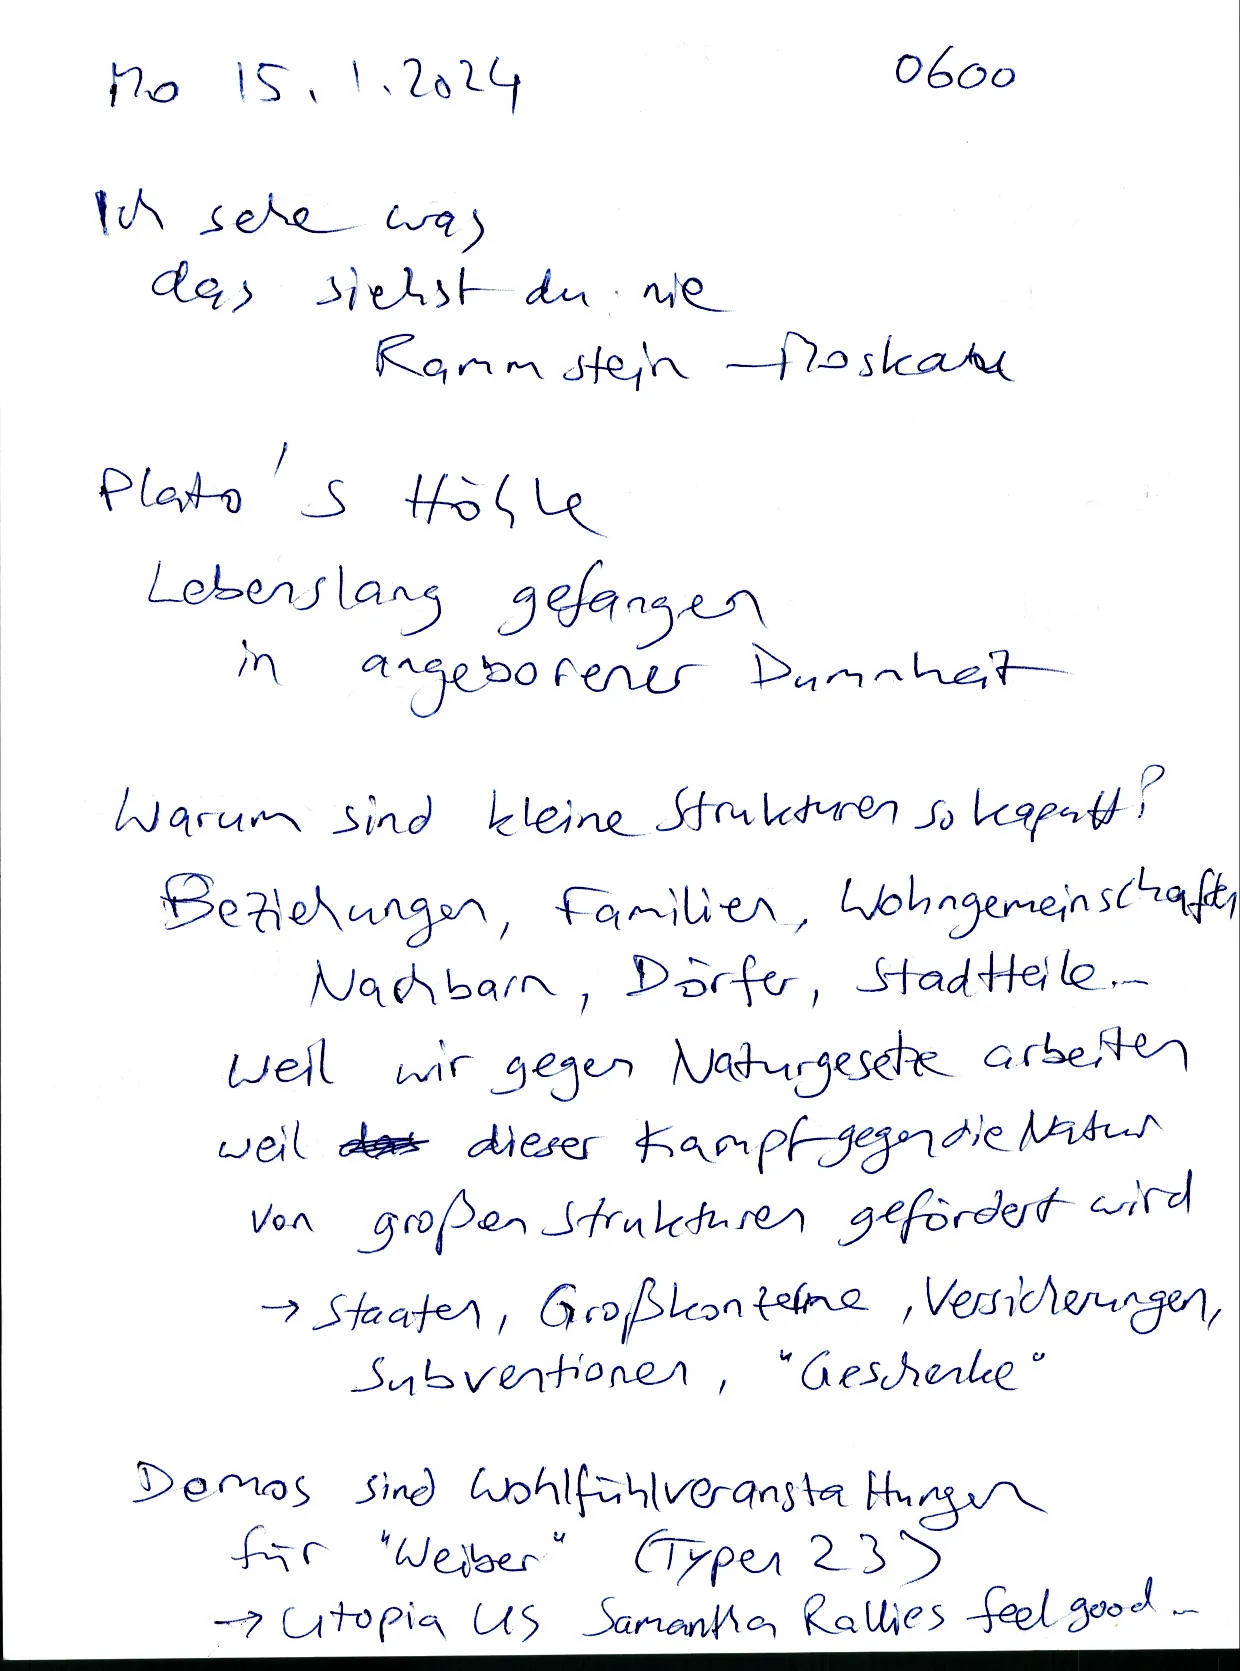 Mo 15.1.2024 0600
Ich sehe was
das siehst du nie
Rammstein - Moskau
Plato's Höhle
Lebenslang gefangen
in angeborener Dummheit
Warum sind kleine Strukturen so kaputt?
Beziehungen, Familien, Wohngemeinschaften
Nachbarn, Dörfer, Stadtteile...
weil wir gegen Naturgesetze arbeiten
weil dieser Kampf gegen die Natur
von großen Strukturen gefördert wird
→ Staaten, Großkonzerne, Versicherungen,
Subventionen, "Geschenke"
Demos sind Wohlfühlveranstaltungen
für "Weiber" (Typen 23)
→ Utopia US Samantha Rallies feel good...